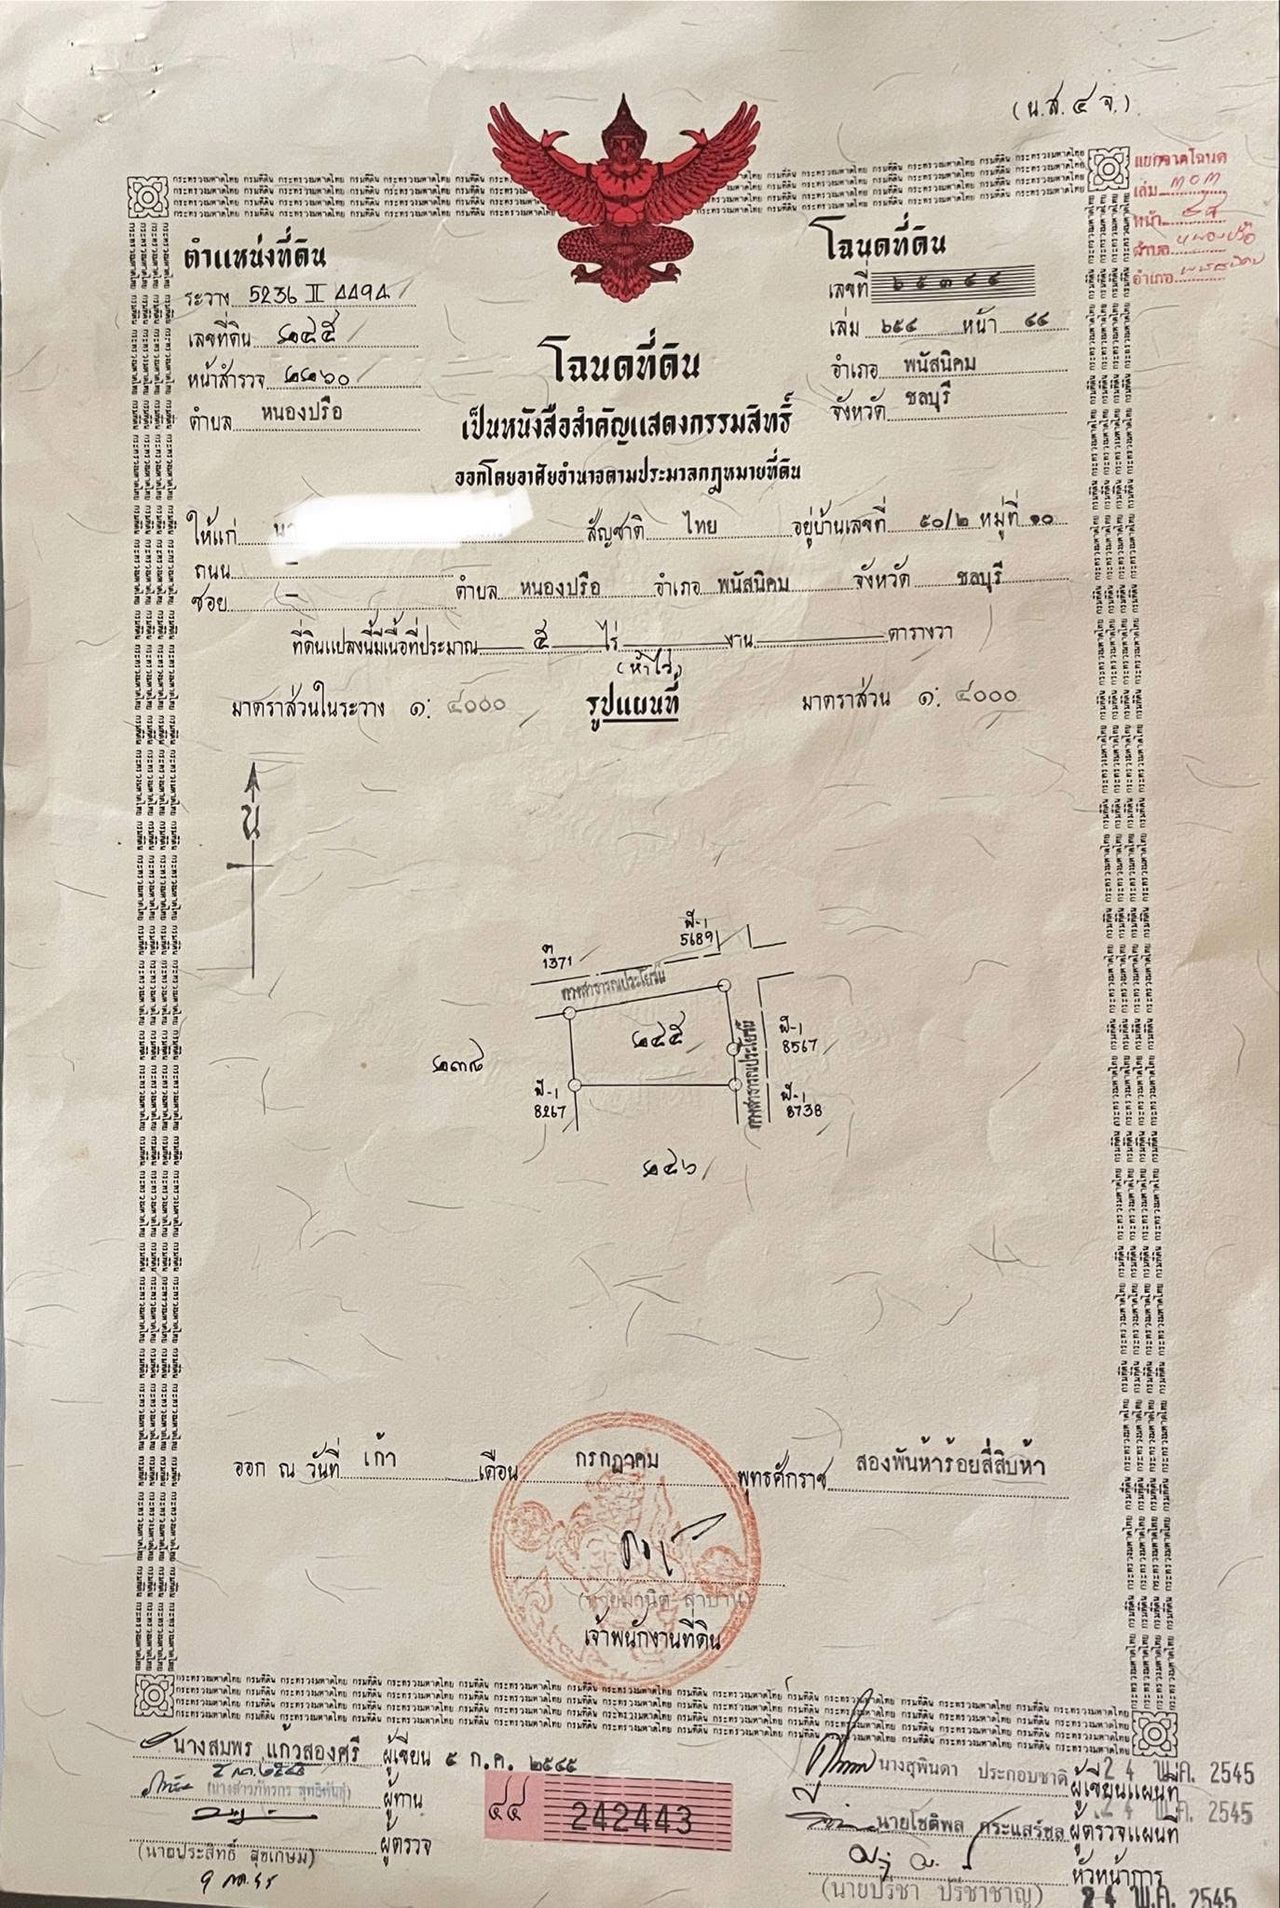 (น.ส.๔ จ.)
แยกจากโฉนด
เล่ม
หน้า
ตำบล หนองปรือ
อำเภอ พนัสนิคม
ตำแหน่งที่ดิน
ระวาง 5236 II 4494
เลขที่ดิน ๒๔๕
หน้าสำรวจ ๒๒๖๐
ตำบล หนองปรือ
โฉนดที่ดิน
เลขที่
เล่ม ๖๕๔ หน้า ๔๔
อำเภอ พนัสนิคม
จังหวัด ชลบุรี
โฉนดที่ดิน
เป็นหนังสือสำคัญแสดงกรรมสิทธิ์
ออกโดยอาศัยอำนาจตามประมวลกฎหมายที่ดิน
ให้แก่ สัญชาติ ไทย อยู่บ้านเลขที่ ๕๐/๒ หมู่ที่ ๑๐
ถนน –
ซอย – ตำบล หนองปรือ อำเภอ พนัสนิคม จังหวัด ชลบุรี
ที่ดินแปลงนี้มีเนื้อที่ประมาณ ๕ ไร่ งาน ตารางวา
(ห้าไร่)
มาตราส่วนในระวาง ๑: ๔๐๐๐ รูปแผนที่ มาตราส่วน ๑: ๔๐๐๐
น
1371
5689
ทางสาธารณประโยชน์
๒๔๕
8567
๒๓๘
8267
ทางสาธารณประโยชน์
8738
๒๔๖
ออก ณ วันที่ เก้า เดือน กรกฎาคม พุทธศักราช สองพันห้าร้อยสี่สิบห้า
เจ้าพนักงานที่ดิน
นางสมพร แก้วสองศรี ผู้เขียน ๕ ก.ค. ๒๕๔๕
ผู้ทาน
ผู้ตรวจ
(นายประสิทธิ์ สุขเกษม)
242443
นางสุพินดา ประกอบชาติ ผู้เขียนแผนที่ 24 พ.ค. 2545
นายโชติพล กระแสร์ชล ผู้ตรวจแผนที่ 24 พ.ค. 2545
หัวหน้าการ
(นายปรีชา ปรีชาชาญ) 24 พ.ค. 2545